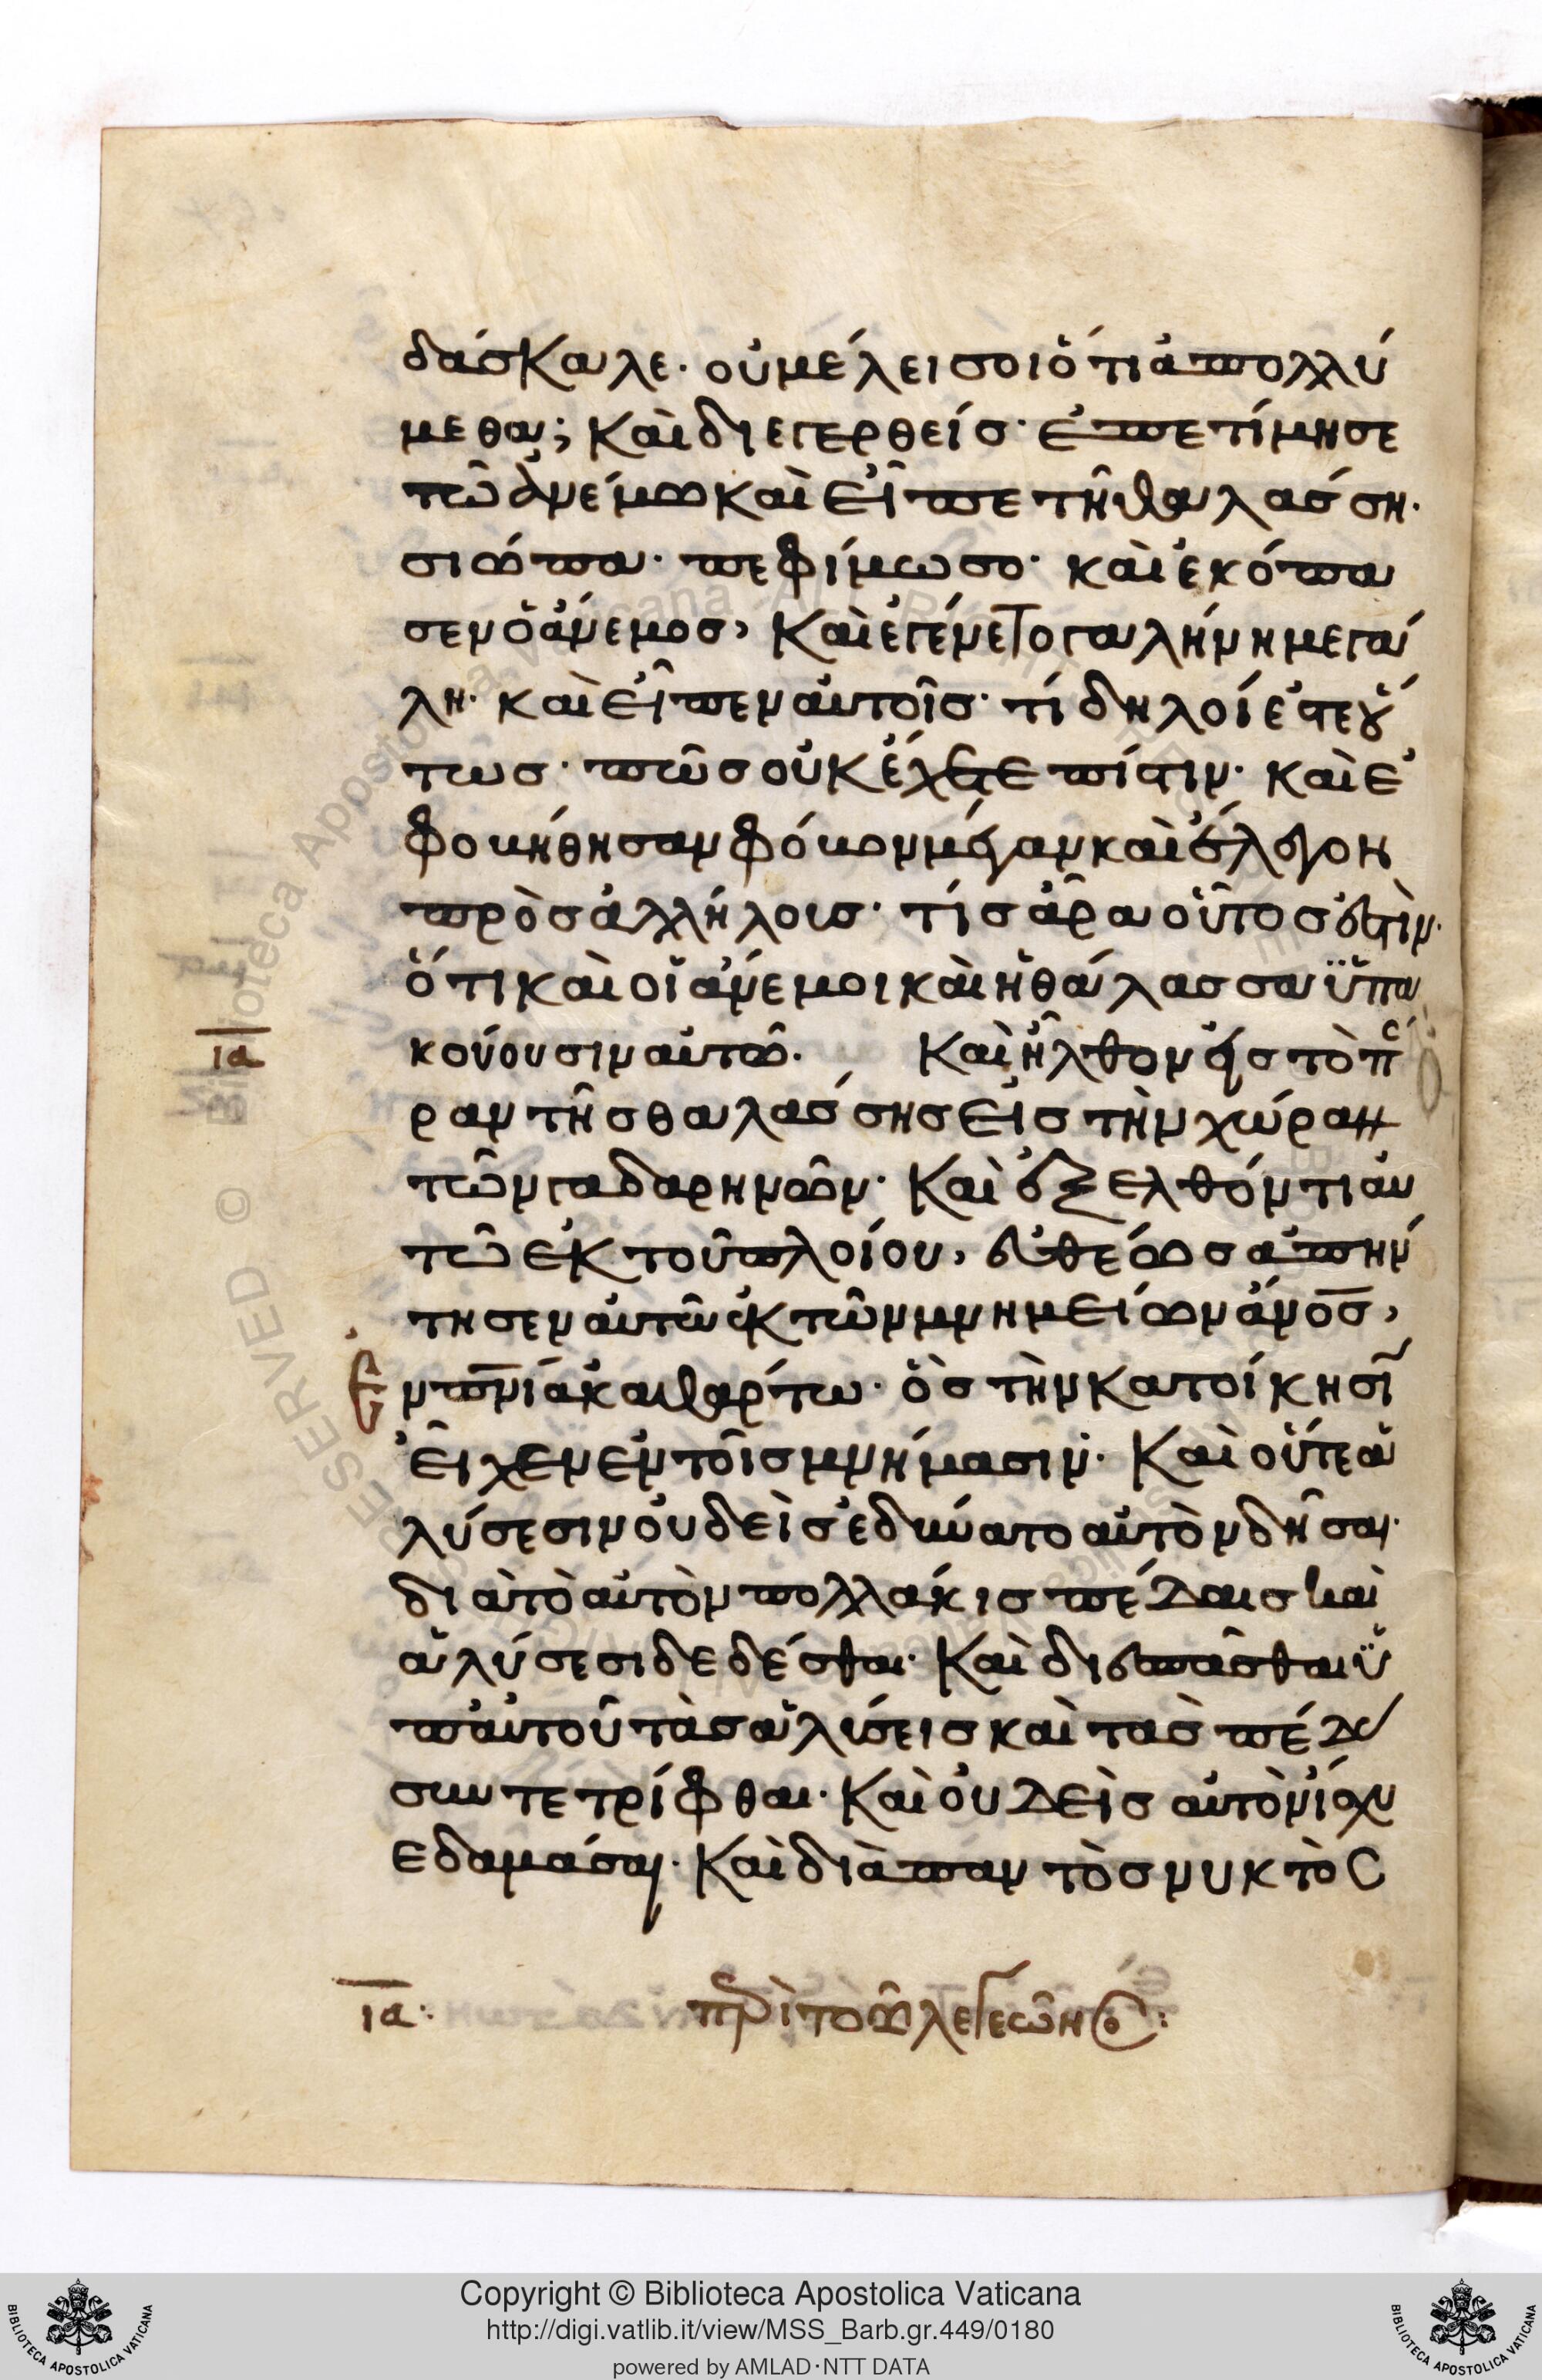 δάσκαλε· οὐ μέλει σοι ὅτι ἀπολλύ
μεθα; καὶ διεγερθείς· ἐπετίμησε
τῶ ἀνέμω καὶ εἶπε τῆ θαλάσση·
σιώπα· πεφίμωσο· καὶ ἐκόπα
σεν ὁ ἄνεμος, καὶ ἐγένετο γαλήνη μεγά
λη· καὶ εἶπεν αὐτοῖς· τί δηλοί ἐστε οὕ
τως· πῶς οὐκ ἔχετε πίστιν· καὶ ἐ
φοβήθησαν φόβον μέγαν καὶ ἔλεγον
πρὸς ἀλλήλους· τίς ἆρα οὗτος ἐστὶν·
ὅτι καὶ οἱ ἄνεμοι καὶ ἡ θάλασσα ὑπα
κούουσιν αὐτῶ. Καὶ ἦλθον εἰς τὸ πέ
ια
ραν τῆς θαλάσσης εἰς τὴν χώραν
τῶν γαδαρηνῶν· Καὶ ἐξελθόντι αὐ
τῶ ἐκ τοῦ πλοίου, εὐθέως ἀπήν
τησεν αὐτῶ ἐκ τῶν μνημείων ἄν̅ο̅ς̅,
Ἐν πν̅ι̅ ἀκαθάρτω· ὃς τὴν κατοίκησι̅
εἶχεν ἐν τοῖς μνήμασιν· Καὶ οὔτε ἁ
λύσεσιν οὐδεὶς ἐδύνατο αὐτὸν δῆσαι·
διὰ τὸ αὐτὸν πολλάκις πέδαις καὶ
ἁλύσεσι δεδέσθαι· Καὶ διεσπᾶσθαι ὑ
π' αὐτοῦ τὰς ἁλύσεις καὶ τὰς πέδας
συντετρίφθαι· Καὶ οὐδεὶς αὐτὸν ἴσχυ
ε δαμάσαι· Καὶ διὰ παντὸς νυκτὸς
ια: περὶ τοῦ λεγεῶνος:
Copyright © Biblioteca Apostolica Vaticana
http://digi.vatlib.it/view/MSS_Barb.gr.449/0180
powered by AMLAD·NTT DATA